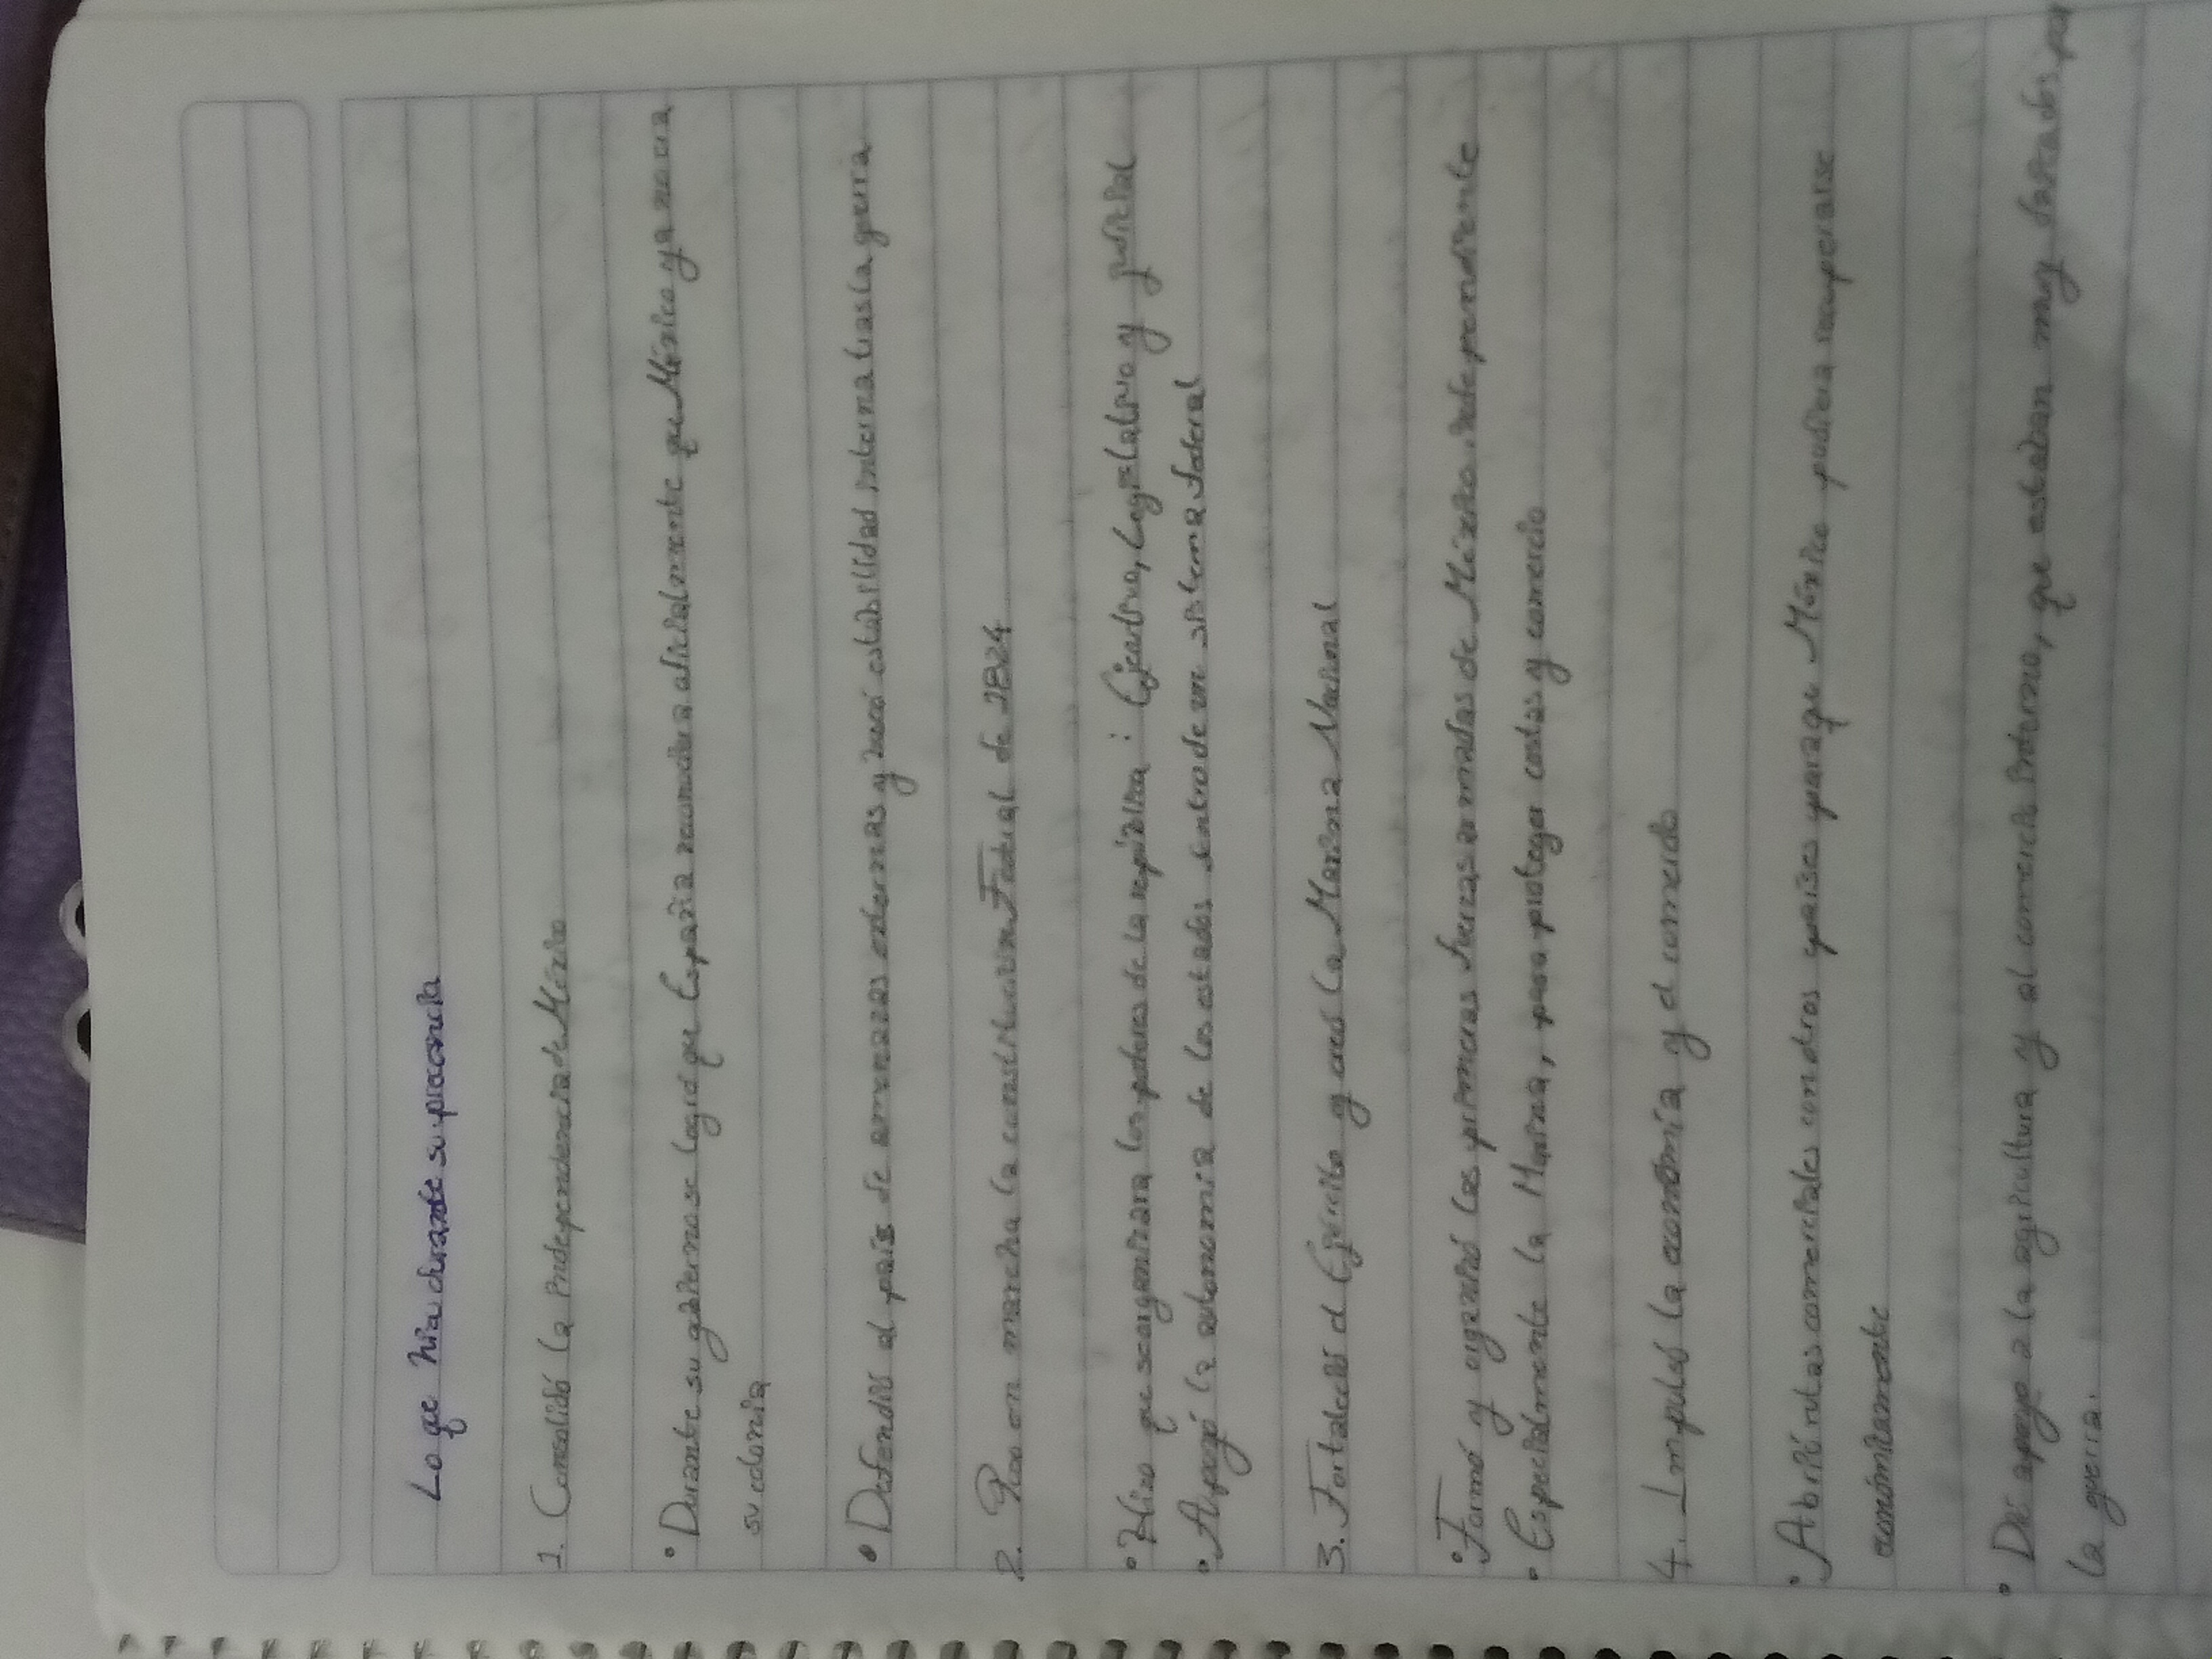 Lo que hizo durante su presencia
1. Consolidó la Independencia de México
• Durante su gobierno se logró que España reconociera oficialmente que México ya no era
su colonia
• Defendió al país de amenazas externas y buscó estabilidad interna tras la guerra
2. Puso en marcha la constitución Federal de 1824
• Hizo que se organizara los poderes de la república: Ejecutivo, Legislativo y judicial
• Apoyó la autonomía de los estados dentro de un sistema federal
3. Fortaleció el Ejército y creó la Marina Nacional
• Formó y organizó las primeras fuerzas armadas de México independiente
• Especialmente la Marina, para proteger costas y comercio
4. Impulsó la economía y el comercio
• Abrió rutas comerciales con otros países para que México pudiera recuperarse
económicamente
• Dió apoyo a la agricultura y al comercio interno, que estaban muy dañados por
la guerra.